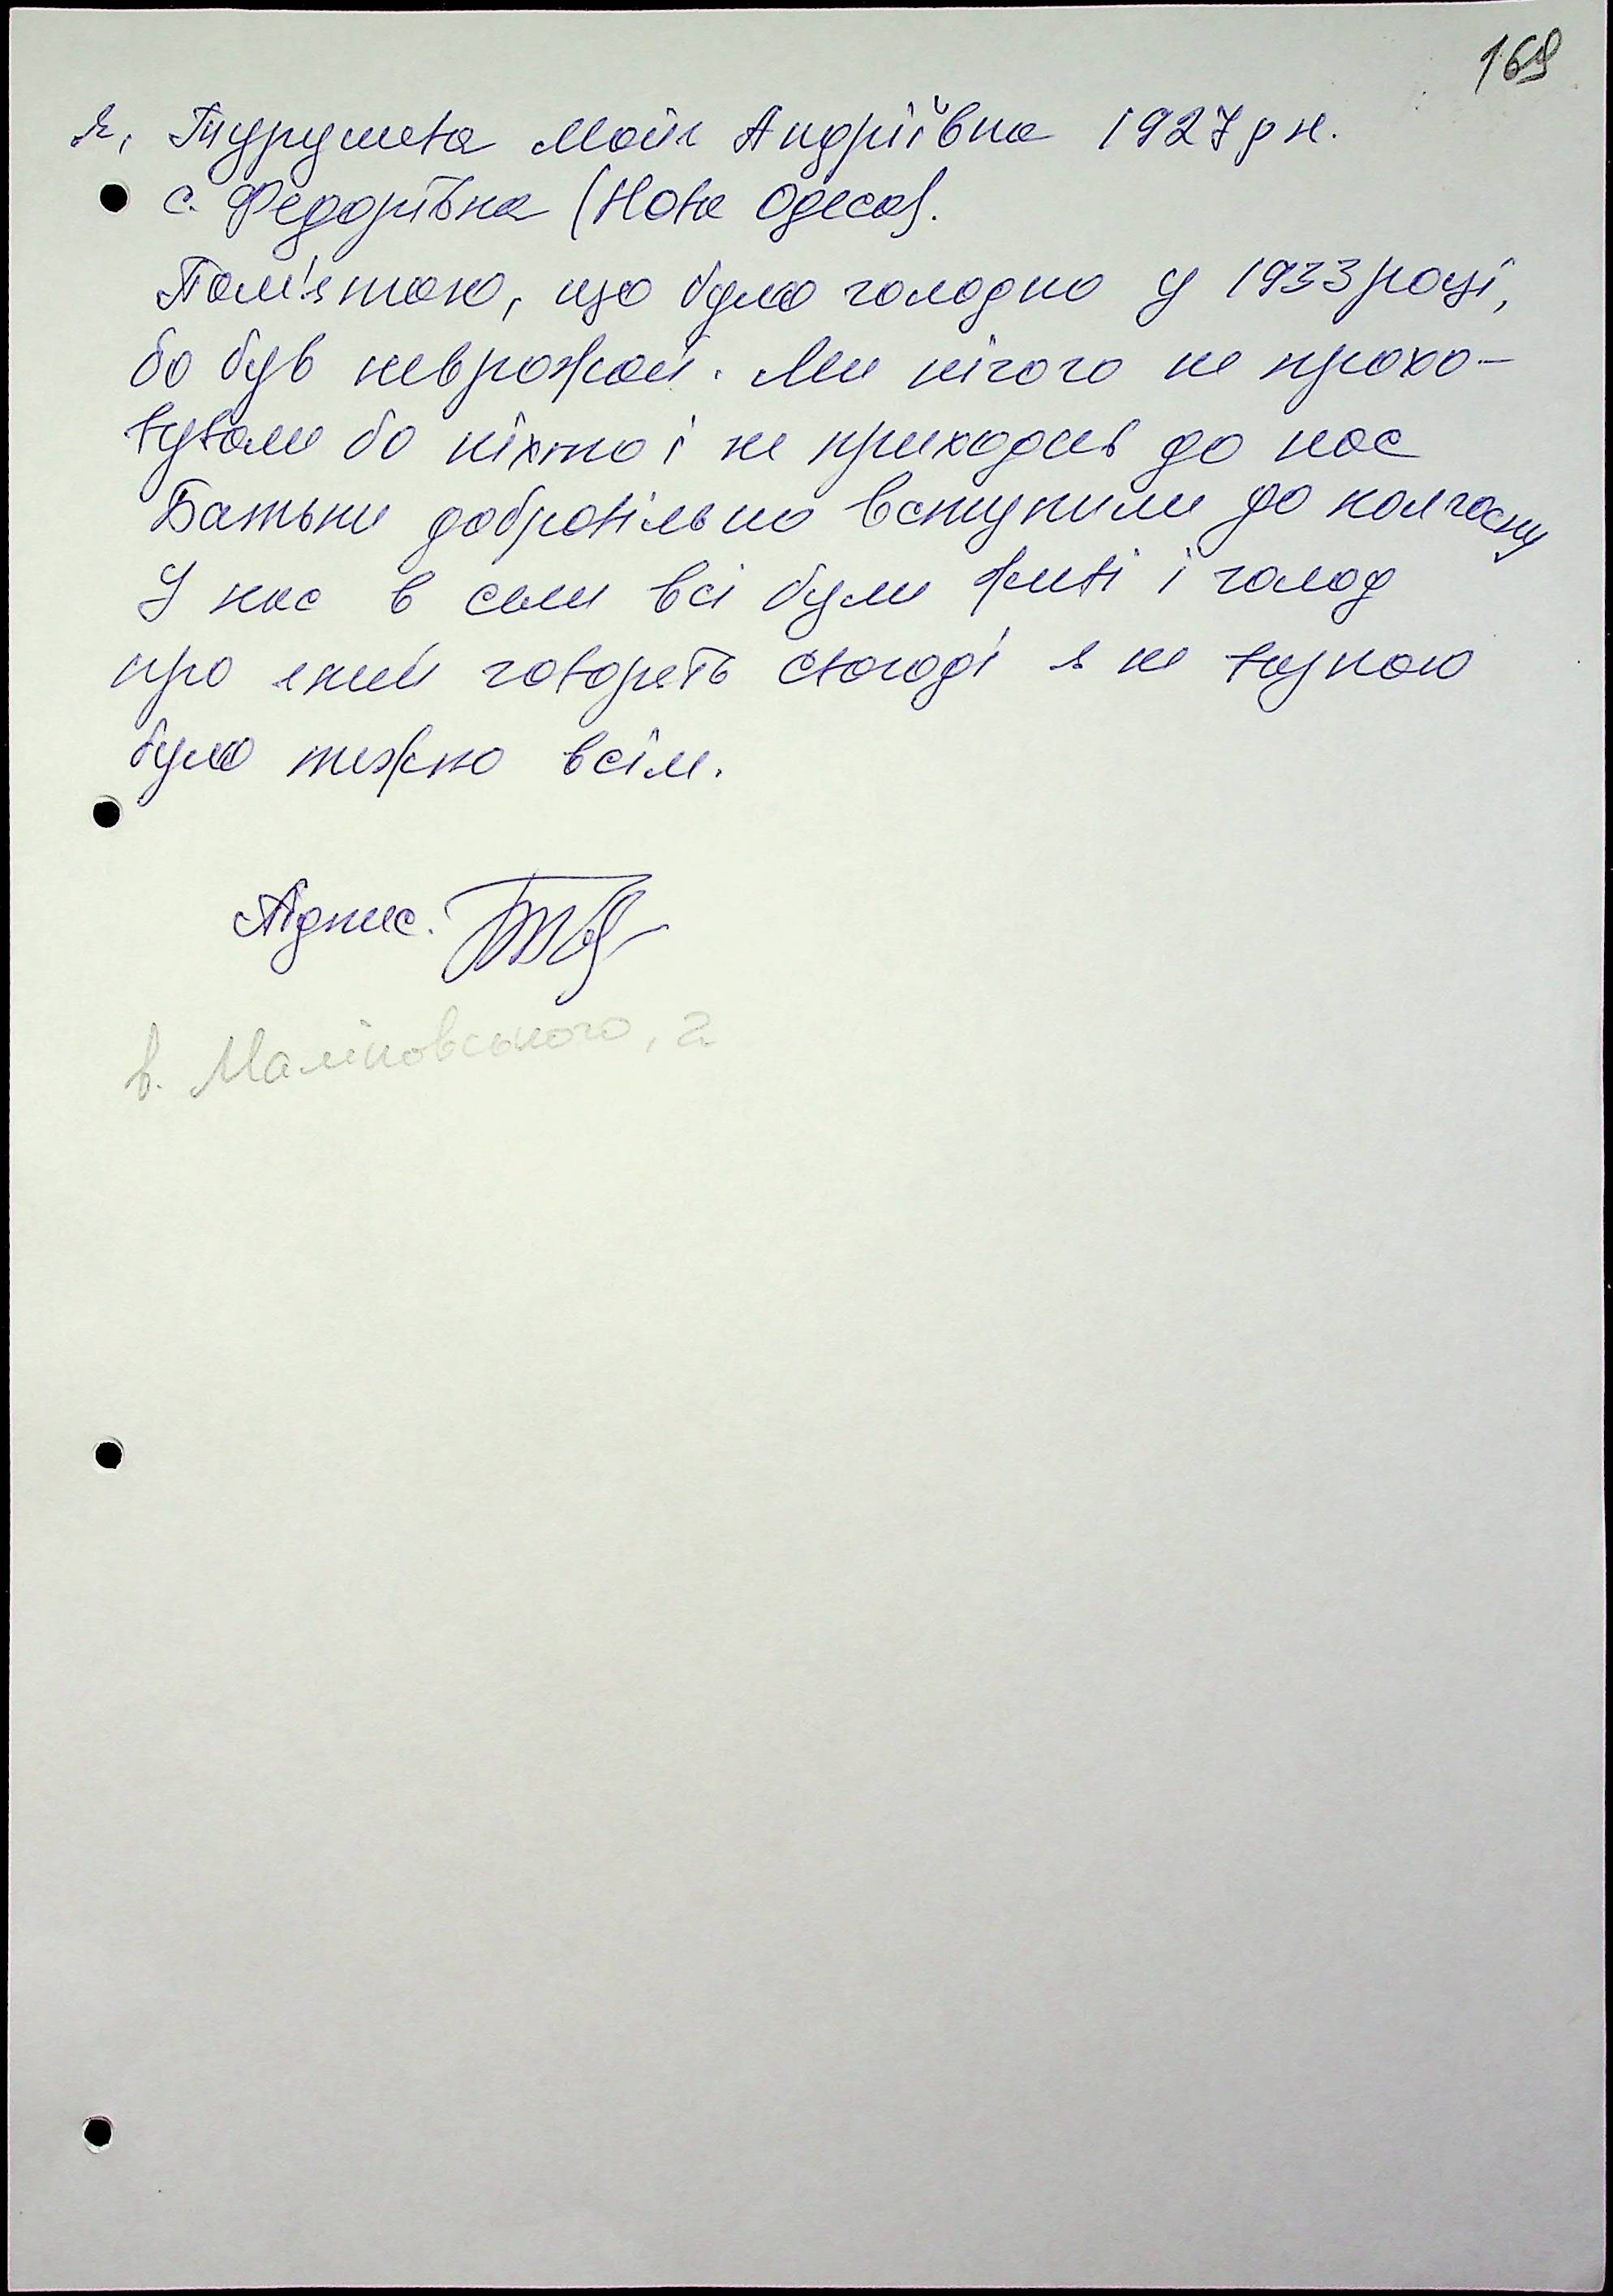 169
Я, Турушева Майя Андріївна 1927 р н.
с. Федорівка (Нова Одеса).
Пам'ятаю, що було голодно у 1933 році,
бо був неврожай. Ми нічого не прохо-
вували бо ніхто і не приходив до нас
Батьки добровільно вступили до колгоспу
У нас в сели всі були живі і голод
про який говорять сьогоді я не
було тяжко всім.
Підпис.
в. Маліновського, 2